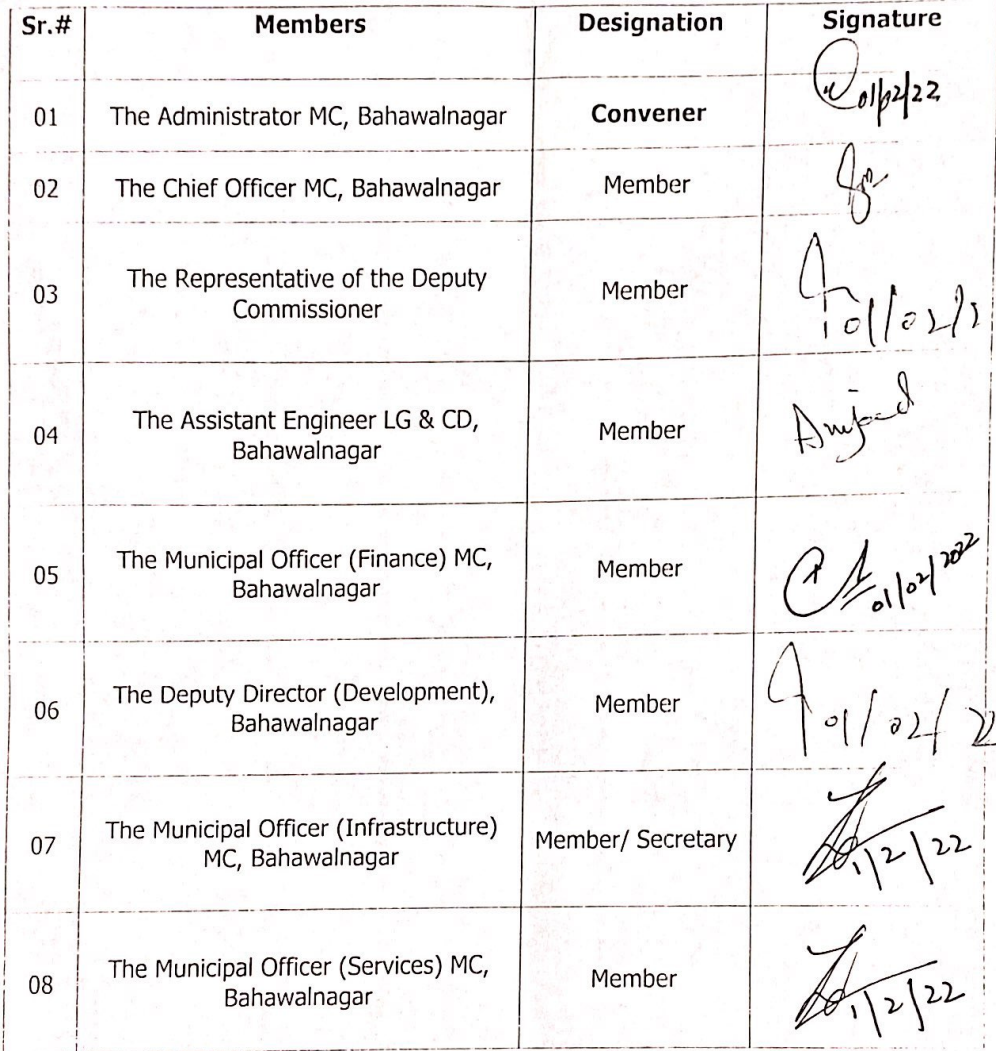 Sr.# Members Designation Signature
01 The Administrator MC, Bahawalnagar Convener 01/02/22
02 The Chief Officer MC, Bahawalnagar Member
03 The Representative of the Deputy Commissioner Member 01/02/2
04 The Assistant Engineer LG & CD, Bahawalnagar Member Amjad
05 The Municipal Officer (Finance) MC, Bahawalnagar Member 01/02/2022
06 The Deputy Director (Development), Bahawalnagar Member 01/02/22
07 The Municipal Officer (Infrastructure) MC, Bahawalnagar Member/ Secretary 1/2/22
08 The Municipal Officer (Services) MC, Bahawalnagar Member 1/2/22